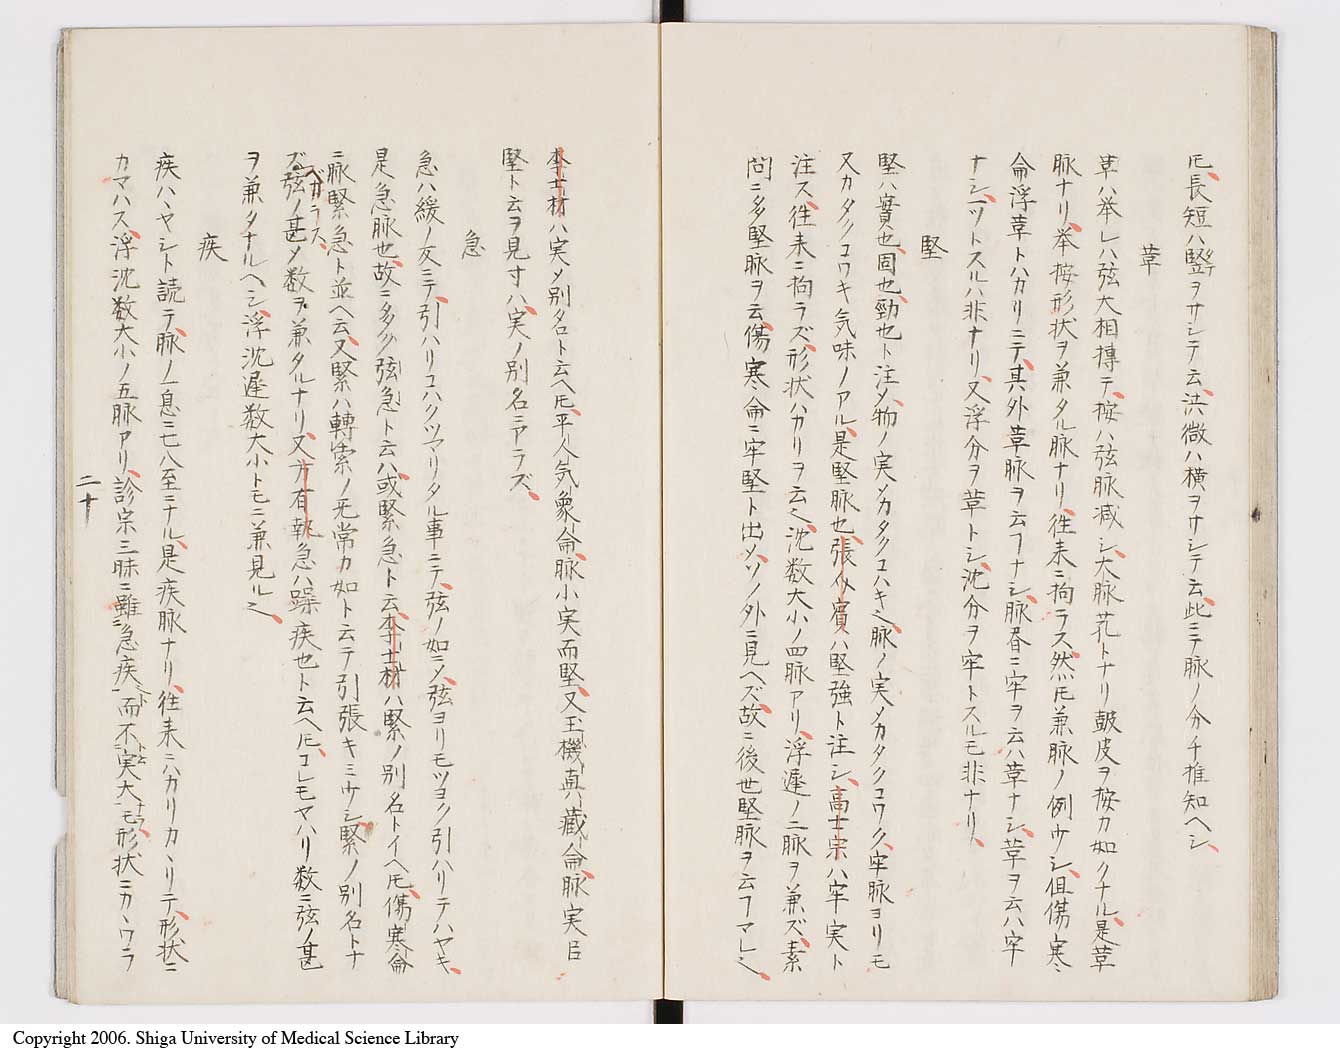 𪜈長短ハ竪ヲサシテ云洪微ハ横ヲサシテ云此ニテ脉ノ分チ推知ヘシ
革
革ハ挙レハ弦大相搏テ按ハ弦脉減シ大脉芤トナリ皷皮ヲ按カ如クナル是革
脉ナリ挙按形状ヲ兼タル脉ナリ往来ニ拘ラス然𪜈兼脉ノ例ウシ但傷寒
論浮革トハカリニテ其外革脉ヲ云ヿナシ脉呑ニ牢ヲ云ハ革ナシ革ヲ云ハ牢
ナシ一ツトスルハ非ナリ又浮分ヲ革トシ沈分ヲ牢トスルモ非ナリ
堅
堅ハ實也固也勁也ト注メ物ノ実メカタクコハキ之脉ノ実メカタクコワク牢脉ヨリモ
又カタクコワキ気味ノアル是堅脉也張介賓ハ堅強ト注シ高士宗ハ牢実ト
注ス往来ニ拘ラズ形状ハカリヲ云之沈数大小ノ四脉アリ浮遲ノ二脉ヲ兼ズ素
問ニ多堅脉ヲ云傷寒論ニ牢堅ト出ソノ外ニ見ヘズ故ニ後世堅脉ヲ云ヿマレ之
李士材ハ実メ別名ト云ヘ𪜈平人気象論脉小実而堅又玉機真藏論脉実曰
堅ト云ヲ見寸ハ実ノ別名ニアラズ
急
急ハ緩ノ反ニテ引ハリコハクツマリタル事ニテ弦ノ如ニメ弦ヨリモツヨク引ハリテハヤキ
是急脉也故ニ多ク弦急ト云ハ或緊急ト云李士材ハ緊ノ別名トイヘ𪜈傷寒論
ニ脉緊急ト並ヘ云又緊ハ轉索ノ无常カ如ト云テ引張キミウシ緊ノ別名トナ
ズベカラス弦ノ甚メ数ヲ兼タルナリ又方有執急ハ躁疾也ト云ヘ𪜈コレモヤハリ数ニ弦ノ甚
ヲ兼タナルヘシ浮沈遲数大小トモニ兼見ル之
疾
疾ハハヤシト読テ脉ノ一息ニ七八至ニナル是疾脉ナリ往来ニハカリカヽリテ形状ニ
カマハス浮沈数大小ノ五脉アリ診宗三昧ニ雖急疾而不実大モ形状ニカヽワラ
二十
Copyright 2006. Shiga University of Medical Science Library